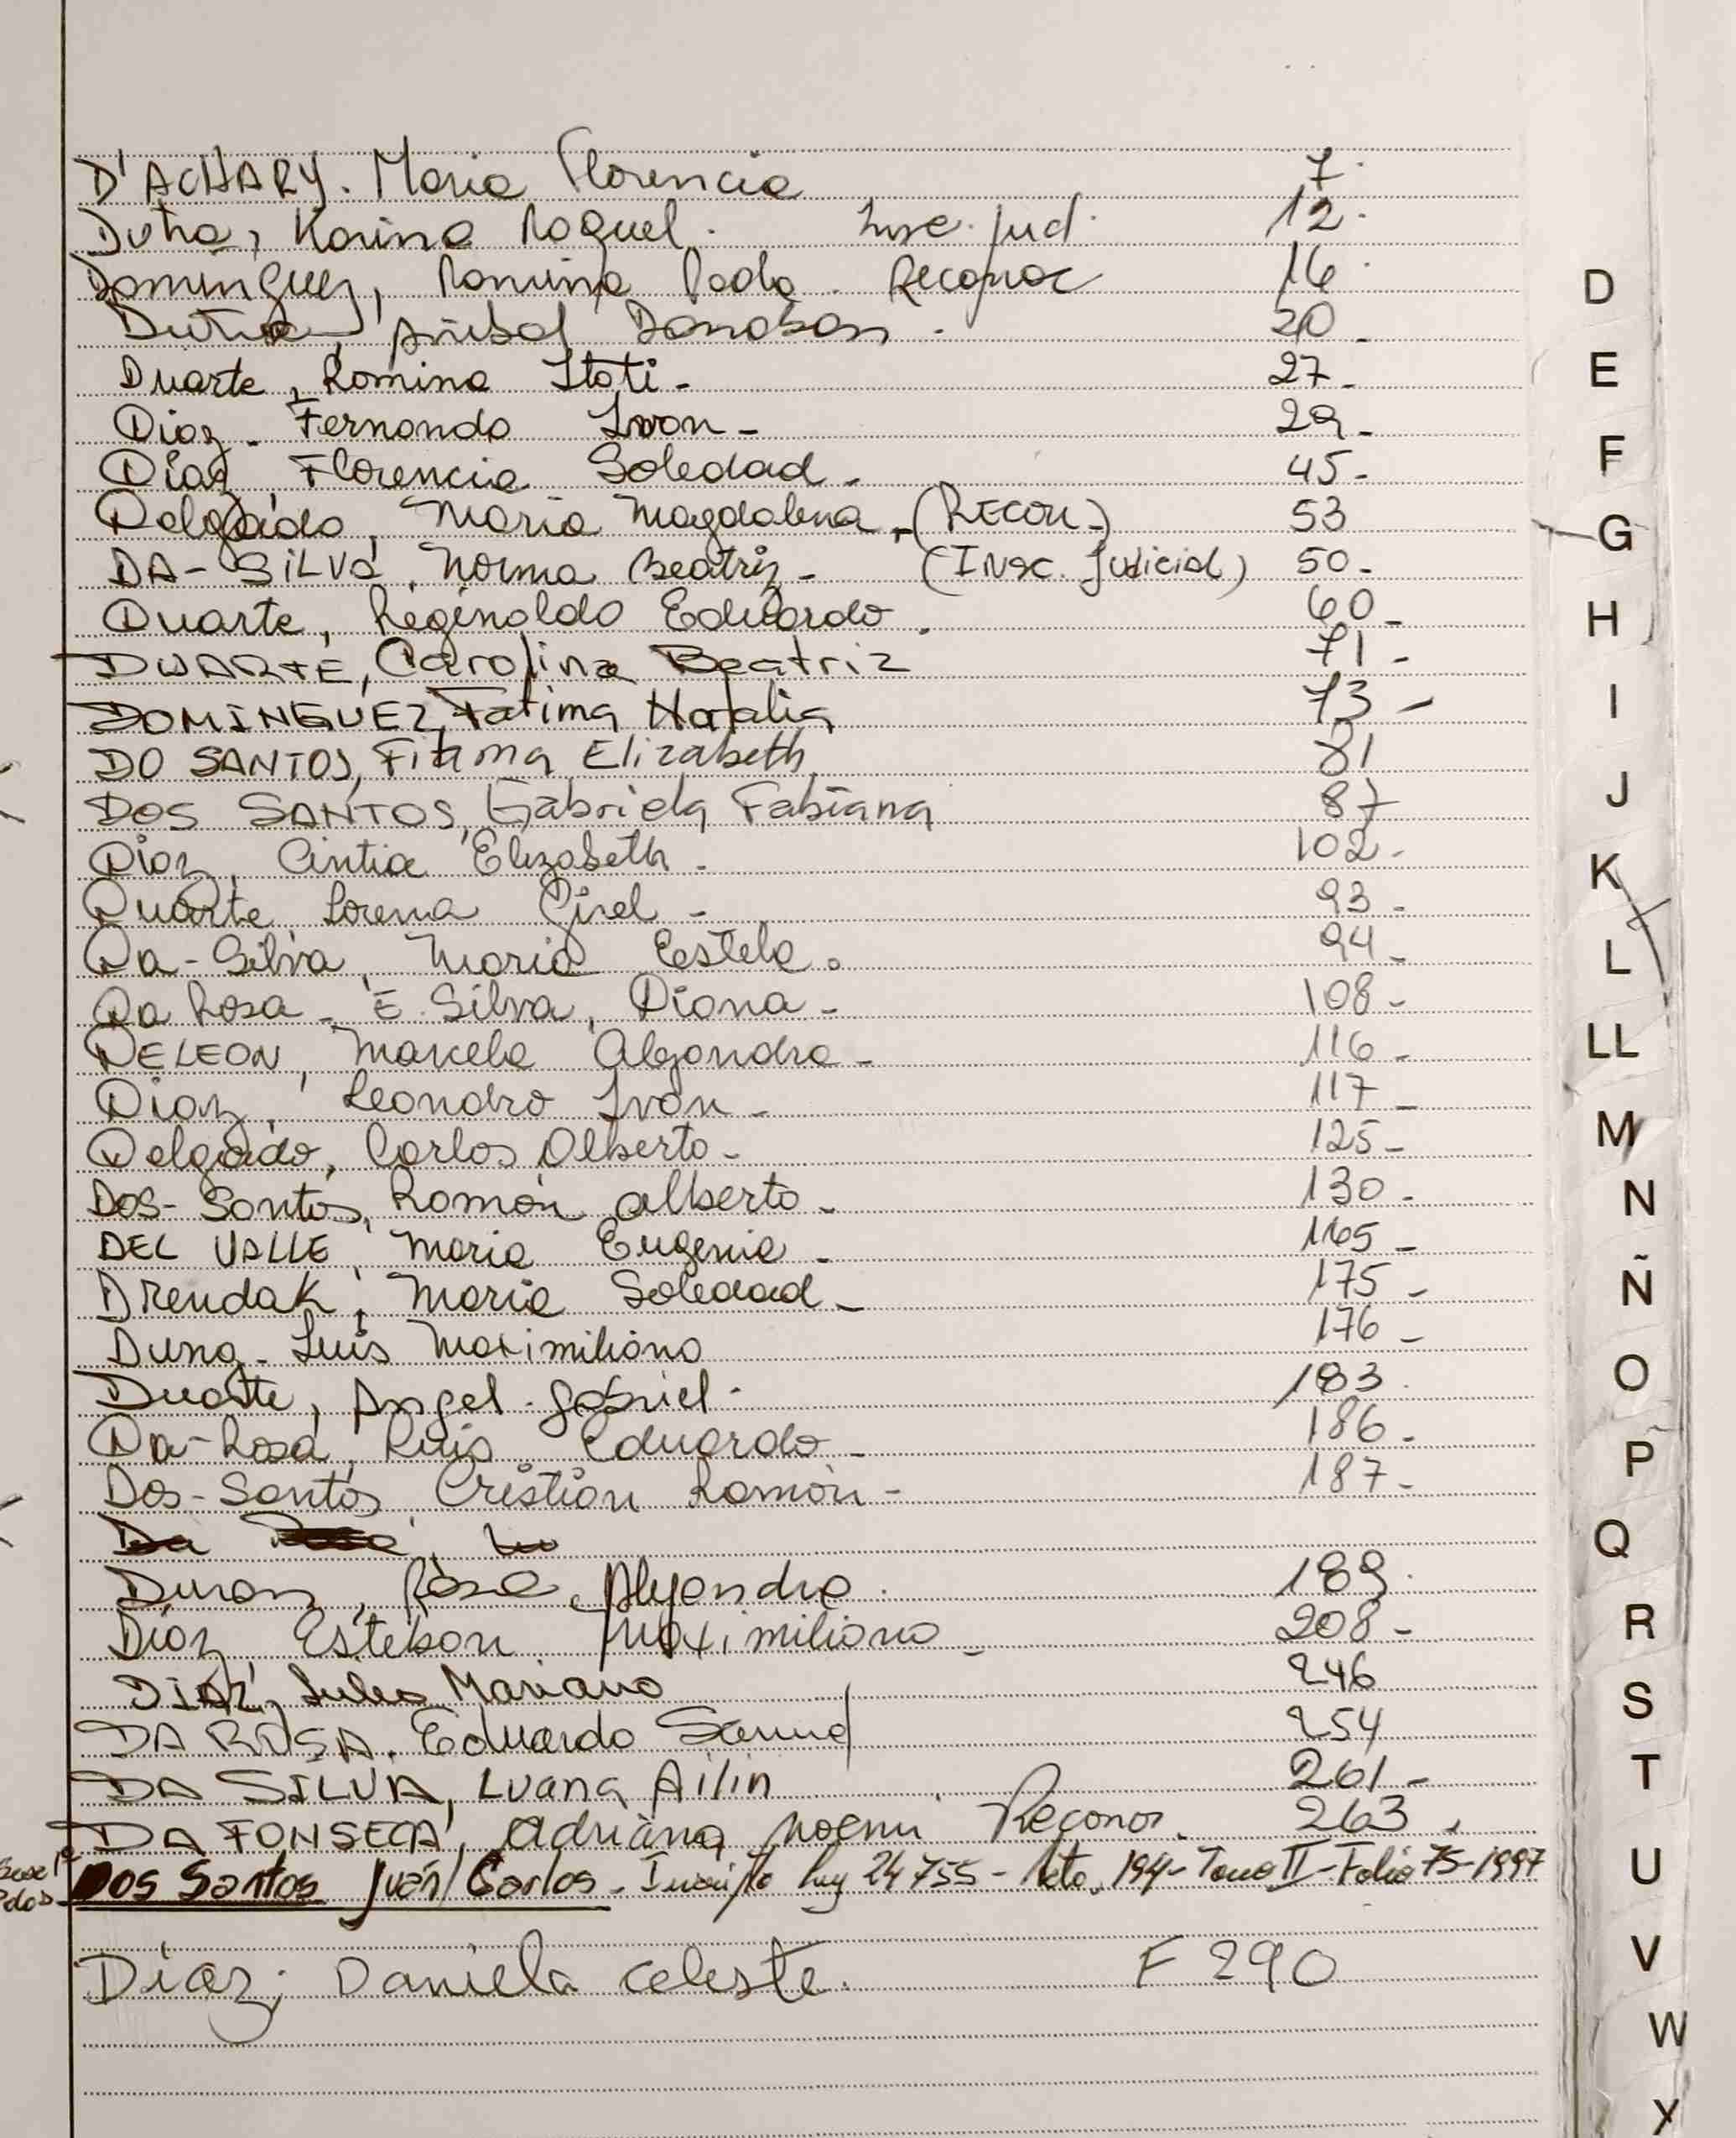 D'ACHARY. Maria Florencia 7.
Dutra, Karina Raquel. Insc. jud. 12.
Dominguez, Romina Paola. Reconoc 16.
Dutra, Anibal Donoban. 20-
Duarte, Romina Itati- 27-
Diaz- Fernando Ivan- 29-
Diaz, Florencia Soledad- 45-
Delgado, Maria Magdalena.-(RECON-) 53
DA-SILVA, Norma Beatriz- (INSC. Judicial) 50-
Duarte, Reginaldo Eduardo. 60-
DUARTE, Carolina Beatriz 71-
DOMINGUEZ, Fatima Natalia 73-
DO SANTOS, Fatima Elizabeth 81
DOS SANTOS, Gabriela Fabiana 87
Diaz, Cintia Elizabeth- 102-
Duarte Lorena Gisel- 93-
Da-Silva, Maria Estela. 94-
Da Rosa- E. Silva, Diana- 108-
DELEON, Marcela Alejandra- 116-
Diaz, Leandro Ivan- 117-
Delgado, Carlos Alberto- 125-
DOS-Santos, Ramón Alberto- 130-
DEL VALLE, Maria Eugenia- 165-
Drendak, Maria Soledad- 175-
Luis Maximiliano 176-
Duarte, Angel-Gabriel- 183.
Da-Rosa, Luis Eduardo- 186-
Dos-Santos, Cristian Ramón- 187-
Da
Duran, Rosa Alejandra. 189.
Diaz Esteban Maximiliano- 208-
DIAZ, Mariano 246
DA ROSA. Eduardo Samuel 254
DA SILVA, Luana Ailin 261-
DA FONSECA, Adriana Noemi Reconoc. 263.
Dos Santos Juan Carlos- Inscripto Ley 24755- Acta. 194- Tomo II- Folio 75-1997
Diaz; Daniela Celeste. F 290
D
E
F
G
H
I
J
K
L
LL
M
N
Ñ
O
P
Q
R
S
T
U
V
W
X